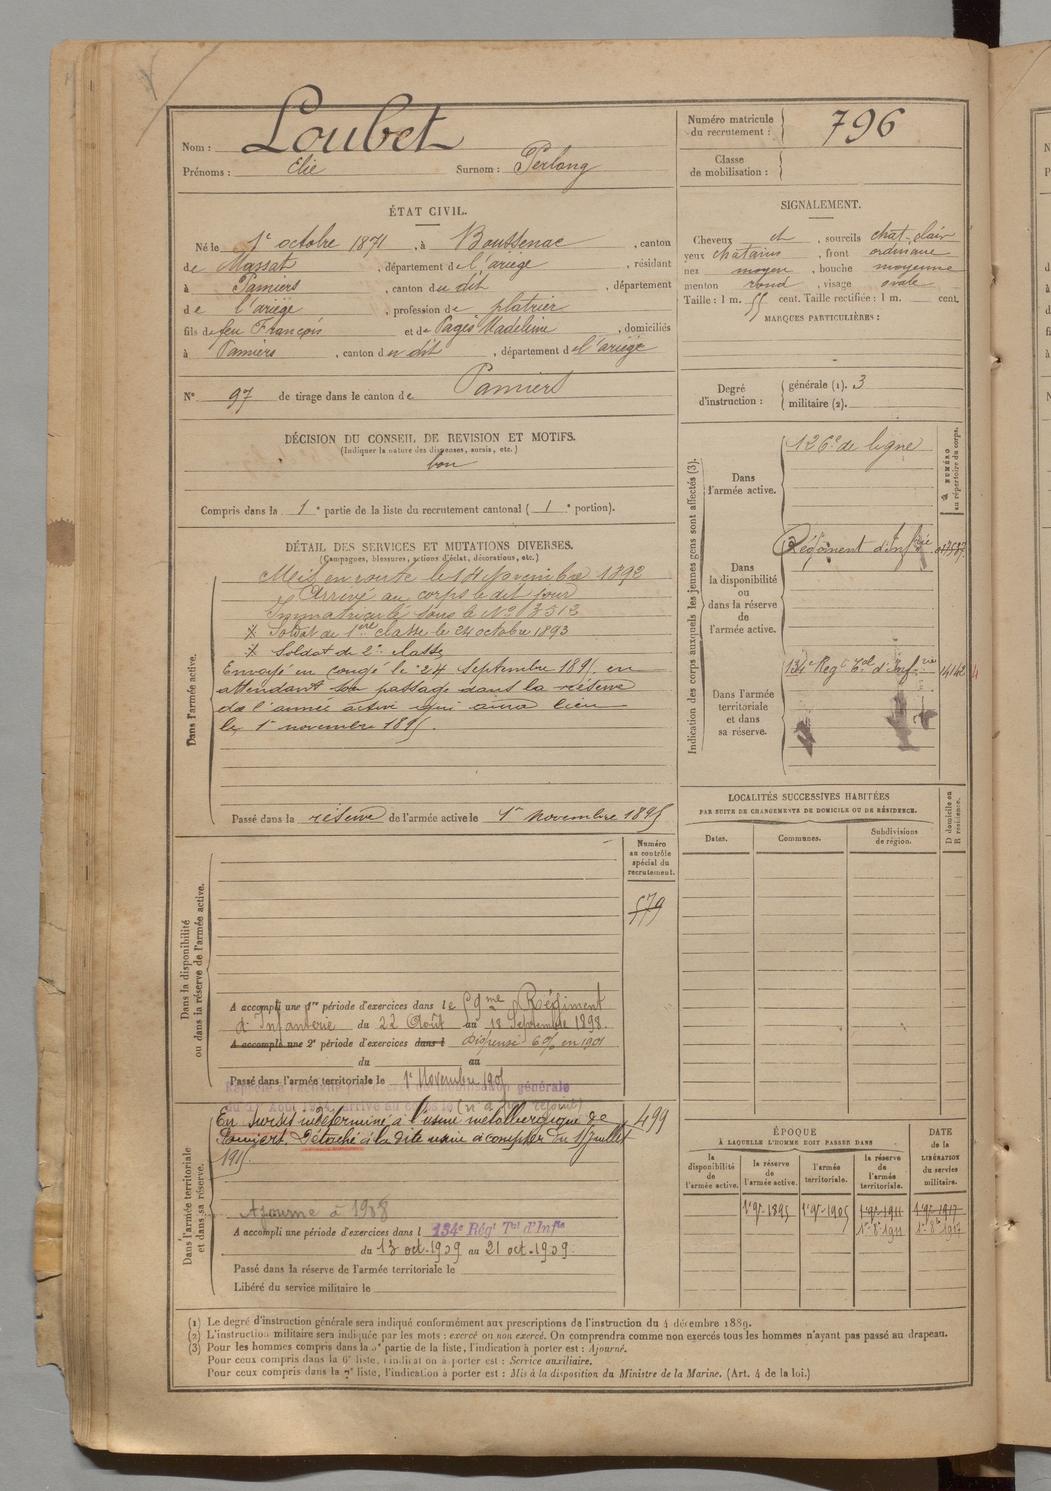 Nom : Loubet
Prénoms : Elie Surnom : Perlong
ÉTAT CIVIL.
Né le 1er octobre 1871, à Boussenac, canton
de Massat, département de l'ariège, résidant
à Pamiers, canton du dit, département
de l'ariège, profession de platrier
fils de feu François et de Pagès Madeleine, domiciliés
à Pamiers, canton du dit, département de l'ariège
N° 97 de tirage dans le canton de Pamiers
DÉCISION DU CONSEIL DE REVISION ET MOTIFS.
(Indiquer la nature des dispenses, sursis, etc.)
bon
Compris dans la 1e partie de la liste du recrutement cantonal (1e portion).
DÉTAIL DES SERVICES ET MUTATIONS DIVERSES.
(Campagnes, blessures, actions d'éclat, décorations, etc.)
Dans l'armée active.
Mis en route le 14 Novembre 1892
Arrivé au corps le dit jour
Immatriculé sous le N° 3513
Soldat de 1ère classe le 24 octobre 1893
Soldat de 2e classe
Envoyé en congé le 24 Septembre 1895 en
attendant son passage dans la réserve
de l'armée active qui aura lieu
le 1er novembre 1895.
Passé dans la réserve de l'armée active le 1er novembre 1895
Dans la disponibilité
ou dans la réserve de l'armée active.
Numéro
au contrôle
spécial du
recrutement.
579
A accompli une 1re période d'exercices dans le 59me Régiment
d'Infanterie du 22 Août au 18 Septembre 1898.
A accompli une 2e période d'exercices dans l Dispensé 6% en 1901
du au
Passé dans l'armée territoriale le 1er Novembre 1905
Dans l'armée territoriale
et dans sa réserve.
Rappelé à l'activité mobilisation générale
Août arrivé au corps le (n'a pas rejoint)
En sursis indéterminé à l'usine métallurgique de 499
Pamiers. Détaché à la dite usine à compter du 11 juillet
1915.
Ajourné à 1908
A accompli une période d'exercices dans l 134e Régt Tal d'Infie
du 13 oct. 1909 au 21 oct. 1909.
Passé dans la réserve de l'armée territoriale le
Libéré du service militaire le
Numéro matricule
du recrutement : 796
Classe
de mobilisation :
SIGNALEMENT.
Cheveux et, sourcils chat. clair
yeux chatains, front ordinaire
nez moyen, bouche moyenne
menton rond, visage ovale
Taille : 1 m. 55 cent. Taille rectifiée : 1 m. cent.
MARQUES PARTICULIÈRES :
Degré
d'instruction :
générale (1). 3
militaire (2).
Indication des corps auxquels les jeunes gens sont affectés (3).
NUMÉRO
au répertoire du corps.
Dans
l'armée active.
126e de ligne
Dans
la disponibilité
ou
dans la réserve
de
l'armée active.
Régiment d'Infrie
Dans l'armée
territoriale
et dans
sa réserve.
134e Regt Tal d'Infrie
LOCALITÉS SUCCESSIVES HABITÉES
PAR SUITE DE CHANGEMENTS DE DOMICILE OU DE RÉSIDENCE.
D domicile ou
R résidence.
Dates. Communes. Subdivisions
de région.
ÉPOQUE
À LAQUELLE L'HOMME DOIT PASSER DANS
DATE
de la
LIBÉRATION
du service
militaire.
la
disponibilité
de
l'armée active.
la réserve
de
l'armée active.
l'armée
territoriale.
la réserve
de
l'armée
territoriale.
1er 9bre 1895 1er 9bre 1905 1er 9bre 1911 1er 9bre 1917
1er 8bre 1911 1er 8bre 1917
(1) Le degré d'instruction générale sera indiqué conformément aux prescriptions de l'instruction du 4 décembre 1889.
(2) L'instruction militaire sera indiquée par les mots : exercé ou non exercé. On comprendra comme non exercés tous les hommes n'ayant pas passé au drapeau.
(3) Pour les hommes compris dans la 5e partie de la liste, l'indication à porter est : Ajourné.
Pour ceux compris dans la 6e liste, l'indication à porter est : Service auxiliaire.
Pour ceux compris dans la 7e liste, l'indication à porter est : Mis à la disposition du Ministre de la Marine. (Art. 4 de la loi.)